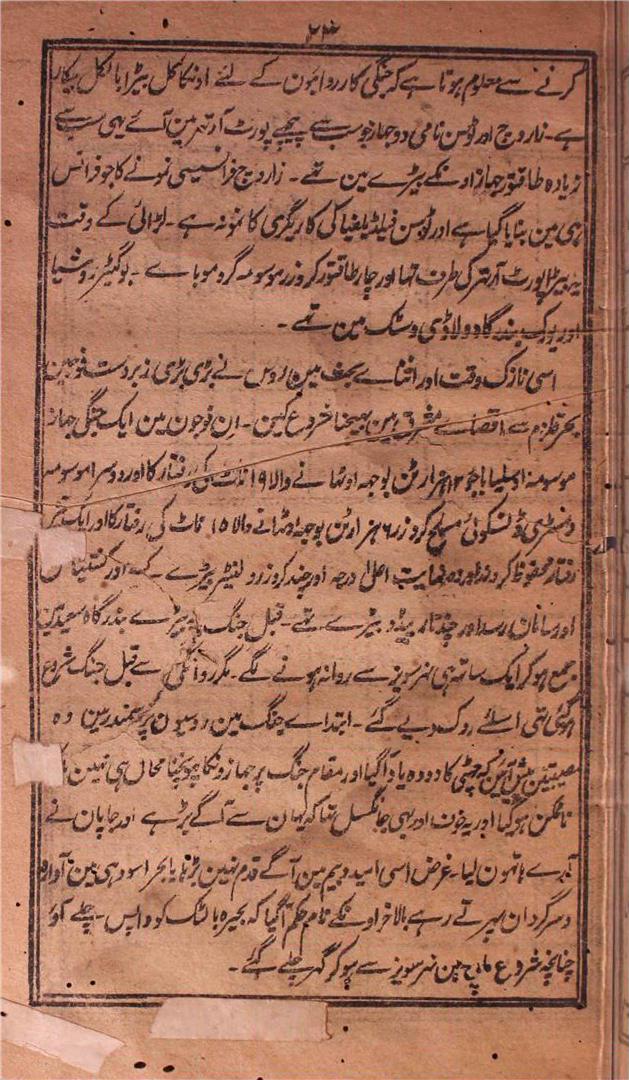 ۲۲۴
کرنے سے معلوم ہوتا ہے کہ جنگی کارروایون کے لئے اونکا کل بیڑا بالکل بیکار
ہے۔ زاروچ اور ٹوسن نامی دو جہاز جو سب سے پیچھے پورٹ آرتھر مین آئے یہی سب سے
زیادہ طاقتور جہاز اونکے بیڑے مین تھے۔ زاروچ فرانسیسی نمونے کا جو فرانس
ہی مین بنایا گیا ہے اور ٹوسن فیلڈیلفیا کی کاریگری کا نمونہ ہے۔ لڑائی کے وقت
یہ بیڑا پورٹ آرتھر کی طرف تھا اور چار طاقتور کروزر موسومہ گروموباے۔ بوگیٹر روشیا
اور یورک بندرگاہ ولاڈی وسٹک مین تھے۔
اسی نازک وقت اور اثناے بحث مین روس نے بڑی بڑی زبردست فوجین
بحر قلزم سے اقصاے مشرق مین بھیجنا شروع کین۔ اِن فوجون مین ایک جنگی جہاز
موسومہ اوسلیابا جو ۱۲ ہزار ٹن بوجھ اوٹھانے والا ۱۹ ناٹ کی رفتار کا اور دوسرا موسومہ
ڈنسکوئی مسلح کروزر ۶ ہزار ٹن بوجھ اوٹھانے والا ۱۵ ناٹ کی رفتار کا اور ایک تیز
رفتار محفوظ کروزر اور دو نہایت اعلیٰ درجہ اور چند کروزر ولنٹیر بیڑے کے اور کشتیان
اور سامان رسد اور چند تارپیڈو بیڑے تھے۔ قبل جنگ یہ بیڑے بندرگاہ سعید مین
جمع ہو کر ایک ساتھ ہی نہر سویز سے روانہ ہونے لگے۔ مگر روانگی سے قبل جنگ شروع
ہوگئی تھی اسلئے روک دیے گئے۔ ابتداے جنگ مین روسیون پر سمندر مین وہ
مصیبتین پیش آئین کہ چھٹی کا دودھ یاد آگیا اور مقام جنگ پر جہازونکا پہونچنا محال ہی نہین
ناممکن ہوگیا اور یہ خوف اور بھی جانگسل تھا کہ یہان سے آگے بڑھے اور جاپان نے
آڑے ہاتھون لیا۔ غرض اسی امید و بیم مین آگے قدم نہین بڑھایا بحر اسود ہی مین آوارہ
وسرگردان پھرتے رہے بالآخر اونکے نام حکم آگیا کہ بحیرہ بالٹک کو واپس چلے آؤ
چنانچہ شروع مارچ مین نہر سویز سے ہو کر گھر چلے گئے۔